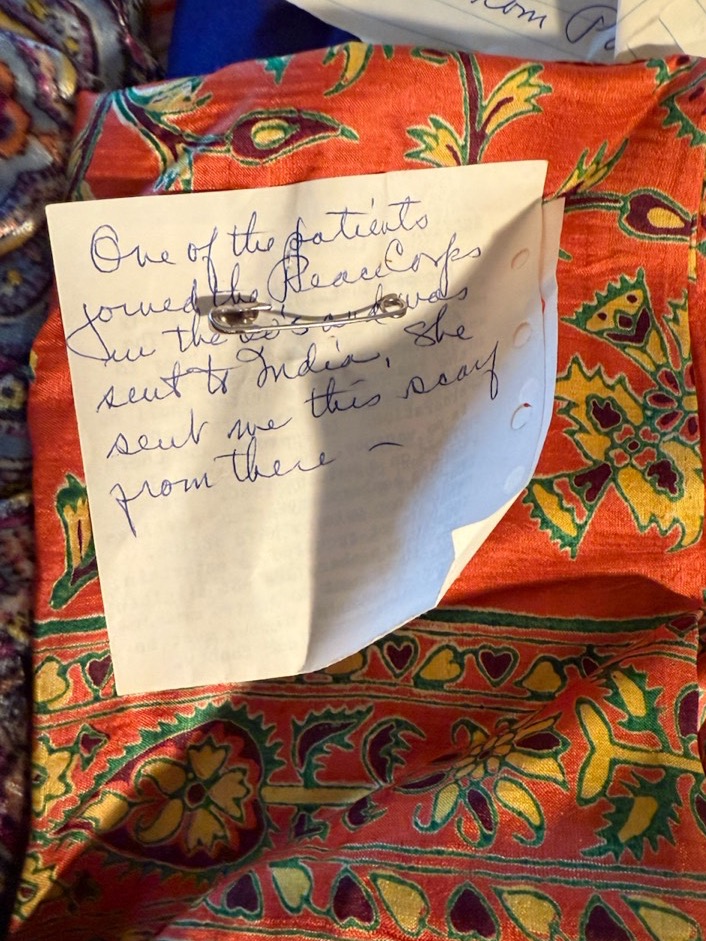 from Pa
One of the patients
joined the Peace Corps
in the 60's and was
sent to India, She
sent me this scarf
from there –